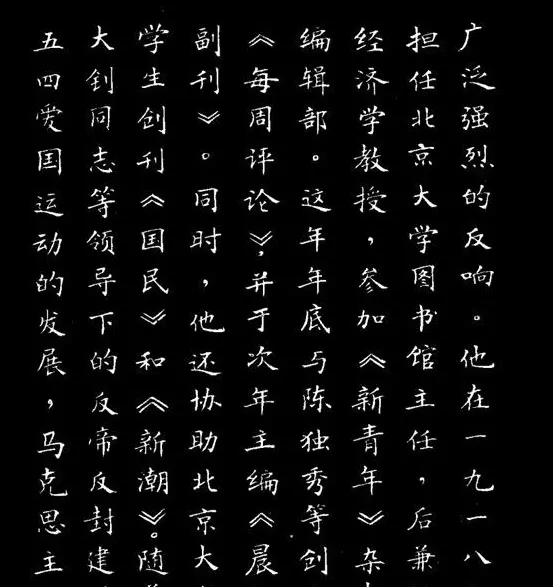 广泛强烈的反响。他在一九一八
担任北京大学图书馆主任，后兼
经济学教授，参加《新青年》杂
编辑部。这年年底与陈独秀等创
《每周评论》，并于次年主编《晨
副刊》。同时，他还协助北京大
学生创刊《国民》和《新潮》。随
大钊同志等领导下的反帝反封建
五四爱国运动的发展，马克思主